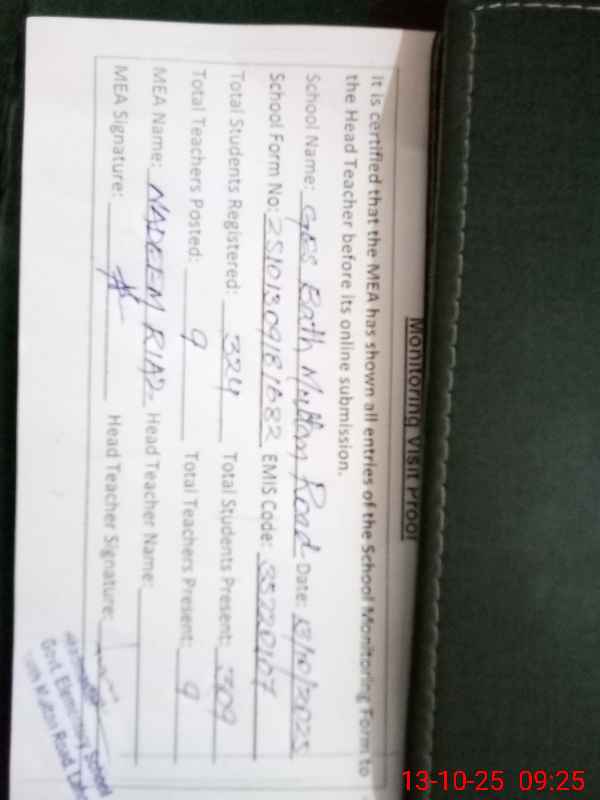 Monitoring Visit Proof
It is certified that the MEA has shown all entries of the School Monitoring Form to
the Head Teacher before its online submission.
School Name: GES Bath Multan Road Date: 13/10/2025
School Form No: 251013091816 82 EMIS Code: 35220107
Total Students Registered: 324 Total Students Present: 309
Total Teachers Posted: 9 Total Teachers Present: 9
MEA Name: NADEEM RIAZ Head Teacher Name:
MEA Signature: Head Teacher Signature:
Govt. Elementary School
Multan Road
13-10-25 09:25